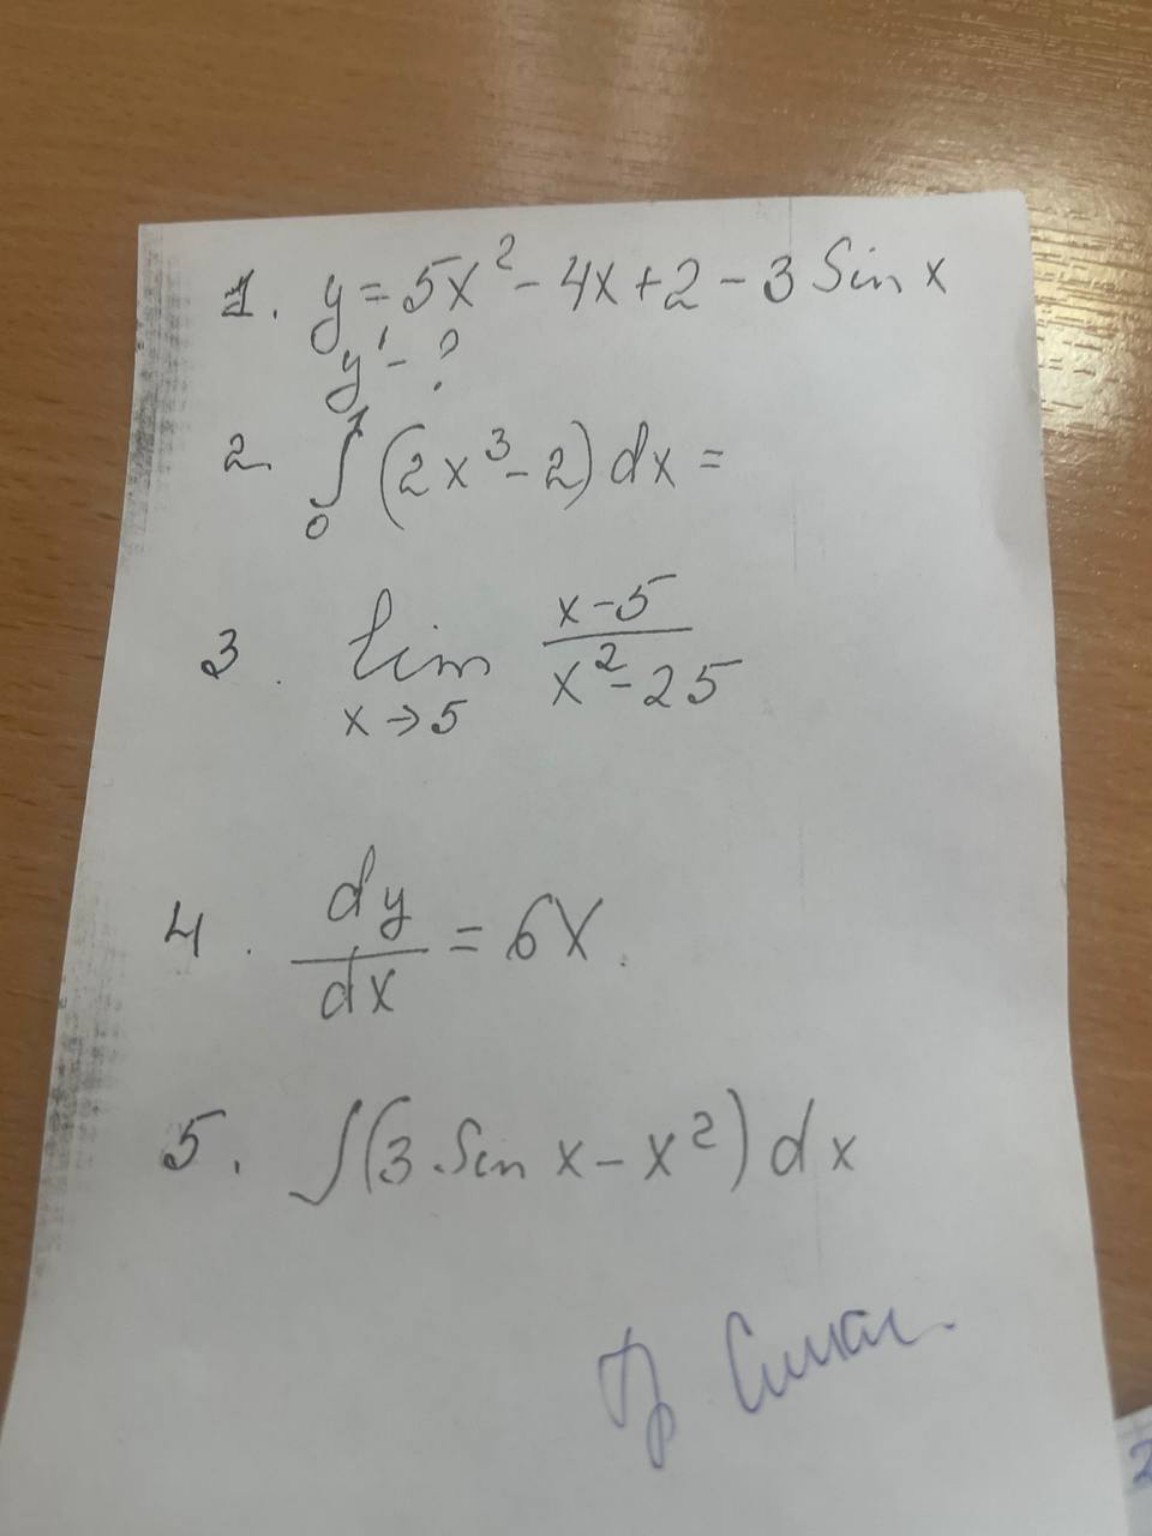 1. y = 5x² - 4x + 2 - 3 Sin x
y' - ?
2. ∫₀¹ (2x³ - 2) dx =
3. lim x→5 (x-5)/(x²-25)
4. dy/dx = 6x.
5. ∫(3 Sin x - x²) dx